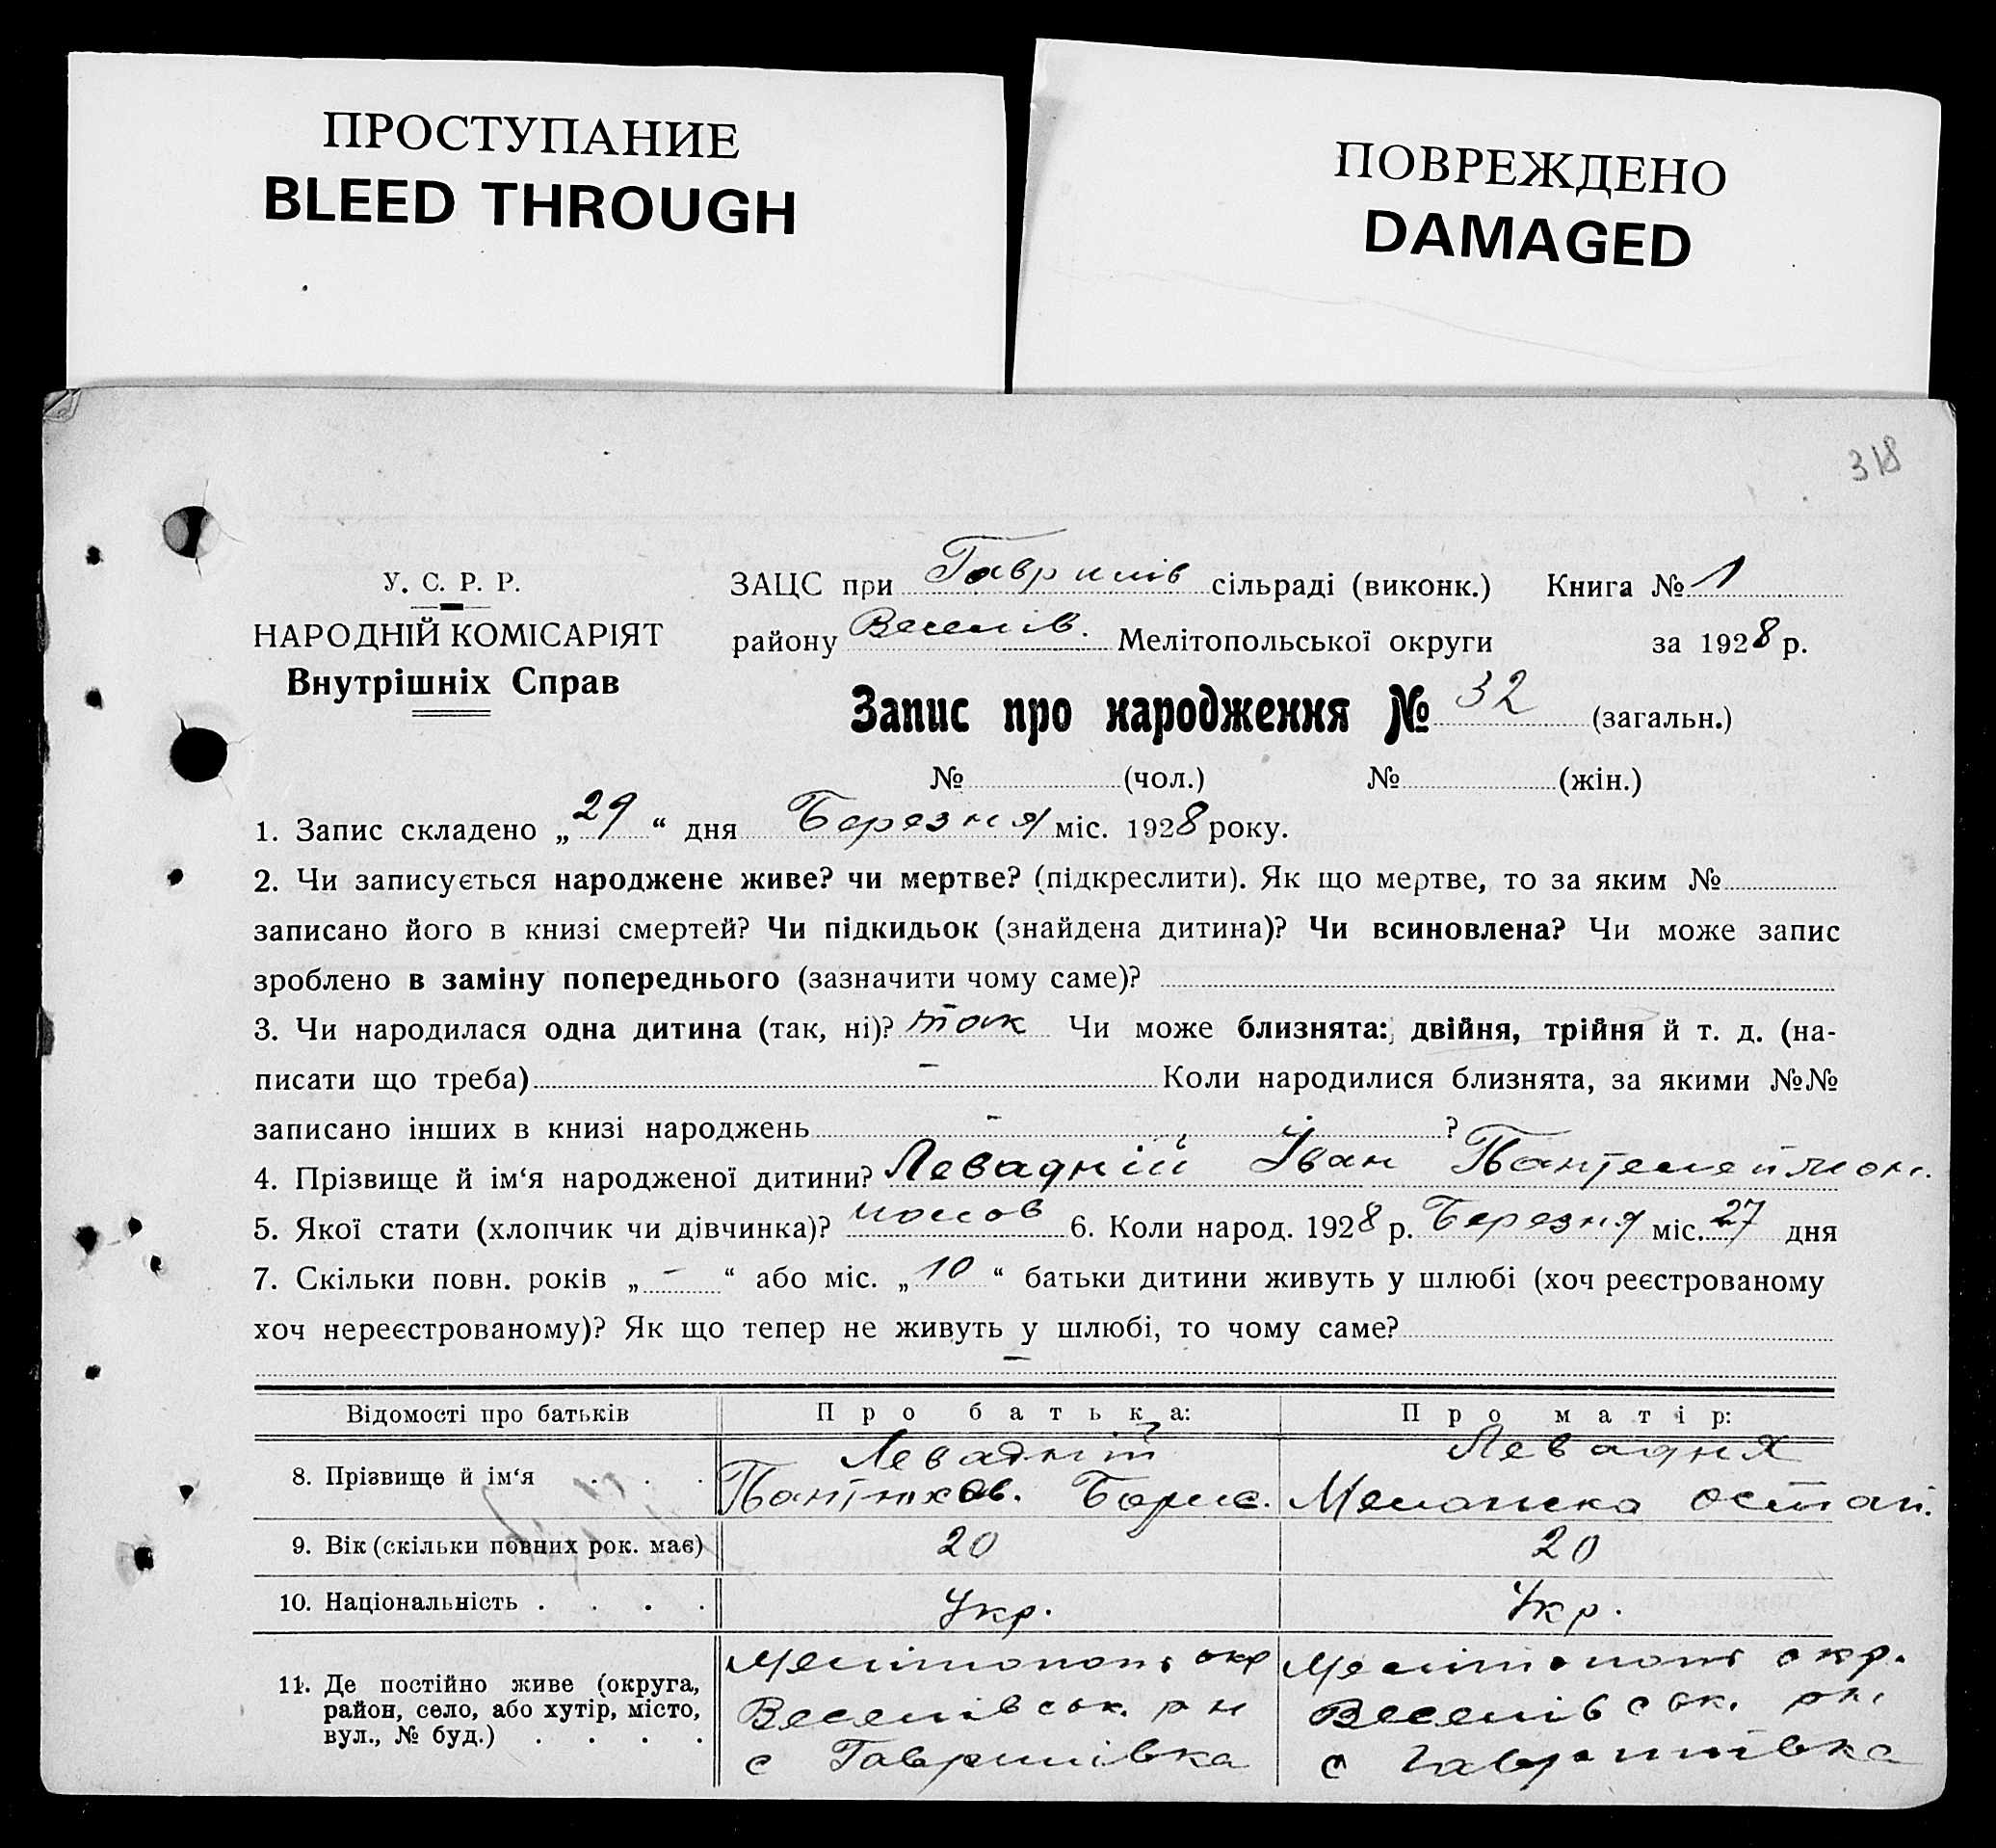 ПРОСТУПАНИЕ
BLEED THROUGH
ПОВРЕЖДЕНО
DAMAGED
318
У. С. Р. Р.
НАРОДНІЙ КОМІСАРІЯТ
Внутрішніх Справ
ЗАЦС при Гаврилів сільраді (виконк.) Книга № 1
району Веселів. Мелітопольської округи за 1928 р.
Запис про народження № 32 (загальн.)
№ (чол.) № (жін.)
1. Запис складено „29“ дня Березня міс. 1928 року.
2. Чи записується народжене живе? чи мертве? (підкреслити). Як що мертве, то за яким №
записано його в книзі смертей? Чи підкидьок (знайдена дитина)? Чи всиновлена? Чи може запис
зроблено в заміну попереднього (зазначити чому саме)?
3. Чи народилася одна дитина (так, ні)? так Чи може близнята: двійня, трійня й т. д. (на-
писати що треба) – Коли народилися близнята, за якими №№
записано інших в книзі народжень – ?
4. Прізвище й ім‘я народженої дитини? Левадній Іван Пантелеймон.
5. Якої стати (хлопчик чи дівчинка)? 6. Коли народ. 1928 р. Березня міс. 27 дня
7. Скільки повн. років „ – “ або міс. „ 10 “ батьки дитини живуть у шлюбі (хоч реєстрованому
хоч нереєстрованому)? Як що тепер не живуть у шлюбі, то чому саме?
–
Відомості про батьків Про батька: Про матір:
8. Прізвище й ім‘я . . . Левадній Левадня
Борис. Меланка Остап.
9. Вік (скільки повних рок. має) 20 20
10. Національність . . . . Укр. Укр.
11. Де постійно живе (округа, район, село, або хутір, місто, вул., № буд.) . . . .
Мелітополь окр Мелітополь окр.
Веселівськ. р н Веселівськ. рн.
с Гаврилівка с Гаврилівка